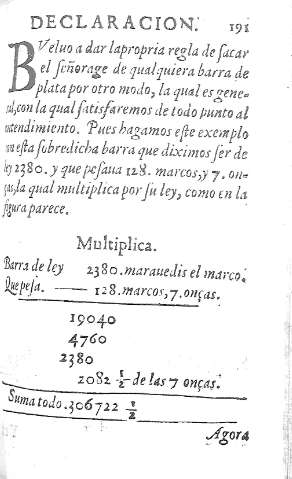 DECLARACION. 191
BVeluo a dar la propria regla de sacar
el señorage de qualquiera barra de
plata por otro modo, la qual es gene-
ral, con la qual satisfaremos de todo punto al
entendimiento. Pues hagamos este exemplo
en esta sobredicha barra que diximos ser de
ley 2380. y que pesaua 128. marcos, y 7. on-
ças, la qual multiplica por su ley, como en la
figura parece.
Multiplica.
Barra de ley 2380. marauedis el marco.
Que pesa. —— 128. marcos, 7. onças.
19040
4760
2380
2082 ½ de las 7 onças.
Suma todo. 306722 ½
Agora